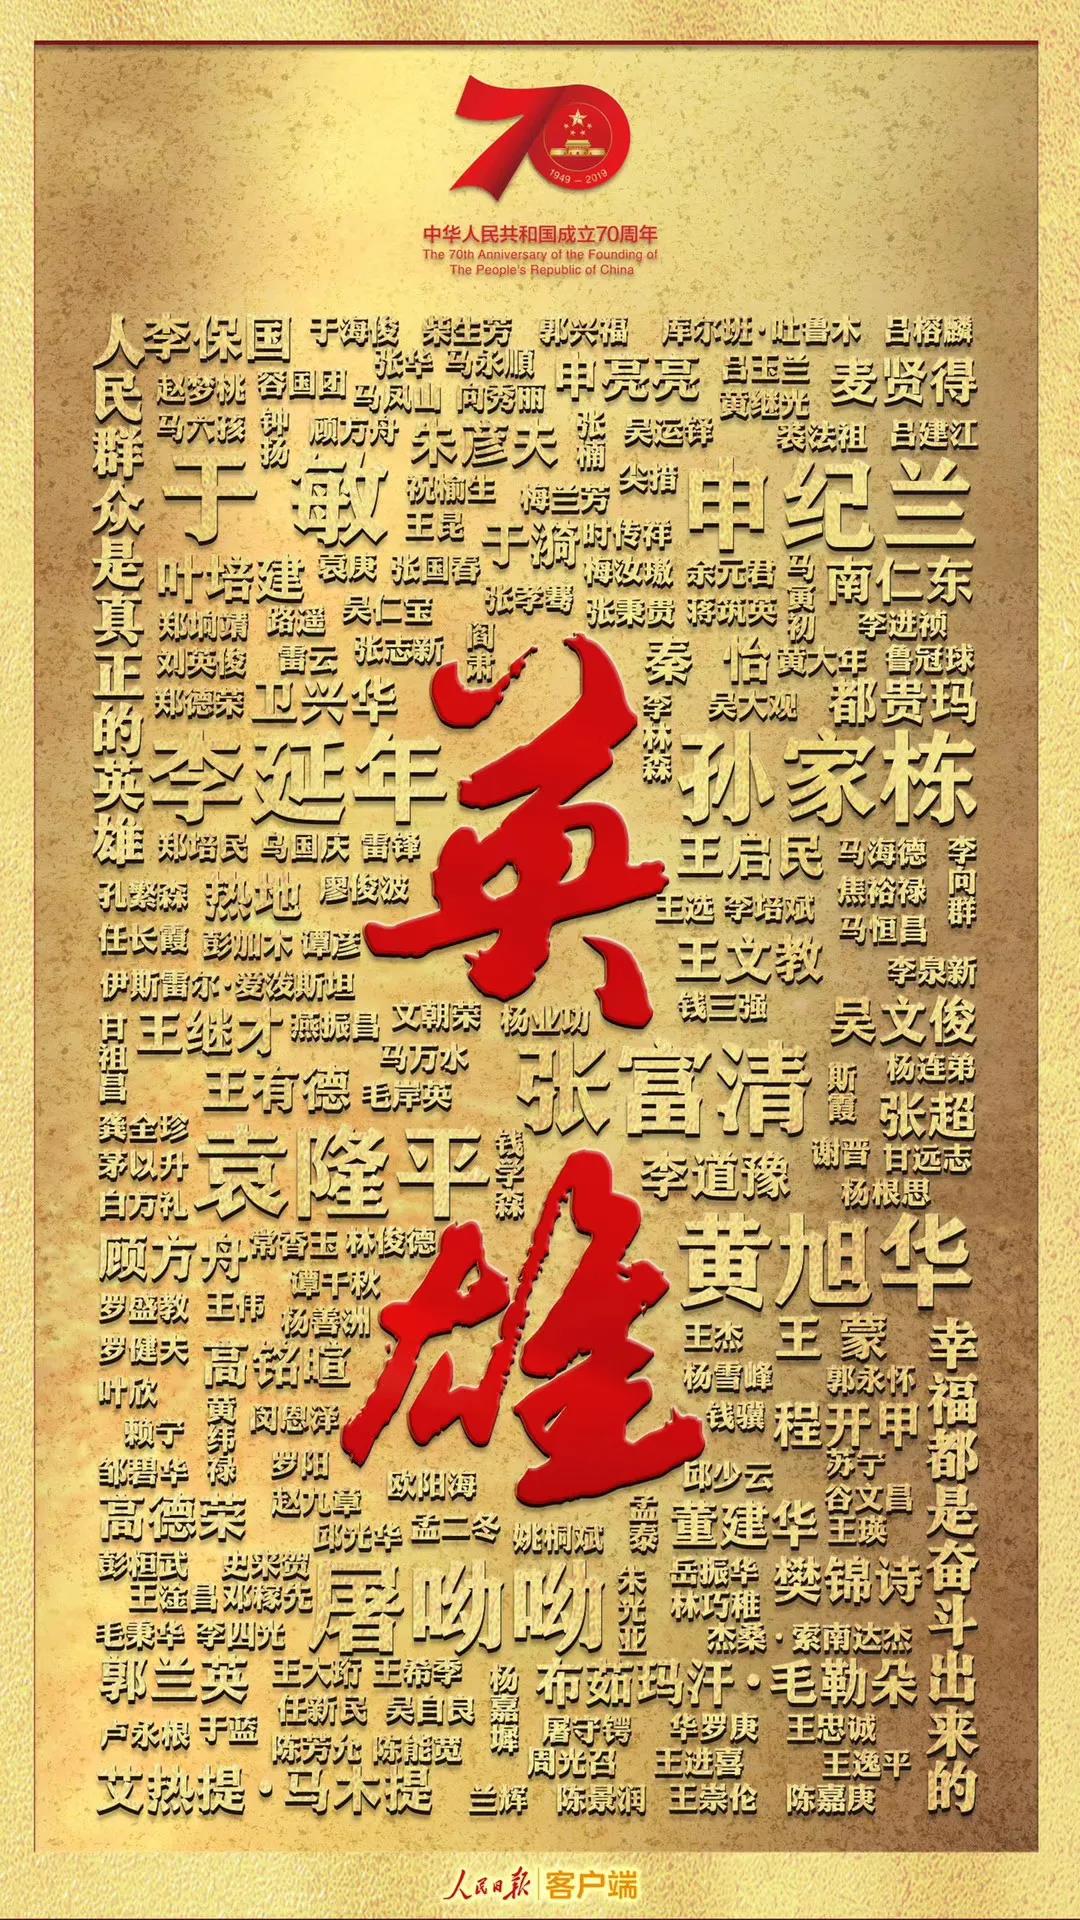 70
1949 - 2019
中华人民共和国成立70周年
The 70th Anniversary of the Founding of
The People's Republic of China
人民群众是真正的英雄
李保国 于海俊 柴生芳 郭兴福 库尔班·吐鲁木 吕榕麟
张华 马永顺 申亮亮 吕玉兰 麦贤得
赵梦桃 容国团 马凤山 向秀丽 黄继光
马六孩 钟扬 顾方舟 朱彦夫 张楠 吴运铎 裘法祖 吕建江
于敏 祝榆生 梅兰芳 尖措 申纪兰
王昆 于漪 时传祥
叶培建 袁庚 张国春 梅汝璈 余元君 马寅初 南仁东
郑垧靖 路遥 吴仁宝 张孝骞 张秉贵 蒋筑英 李进祯
刘英俊 雷云 张志新 阎肃 秦怡 黄大年 鲁冠球
郑德荣 卫兴华 李林森 吴大观 都贵玛
李延年 孙家栋
郑培民 乌国庆 雷锋 王启民 马海德 李向群
孔繁森 热地 廖俊波 王选 李培斌 焦裕禄
任长霞 彭加木 谭彦 王文教 马恒昌
伊斯雷尔·爱泼斯坦 钱三强 李泉新
英雄
甘祖昌 王继才 燕振昌 文朝荣 杨业功 吴文俊
马万水 张富清 斯霞 杨连弟
王有德 毛岸英 张超
龚全珍 袁隆平 钱学森 谢晋 甘远志
茅以升 李道豫 杨根思
白万礼
顾方舟 常香玉 林俊德 黄旭华
谭千秋
罗盛教 王伟 杨善洲 王杰 王蒙
罗健夫 高铭暄 杨雪峰 郭永怀
叶欣 黄纬禄 闵恩泽 钱骥 程开甲
赖宁
邹碧华 罗阳 欧阳海 邱少云 苏宁
高德荣 赵九章 孟泰 董建华 谷文昌
邱光华 孟二冬 姚桐斌 王瑛
彭桓武 史来贺 屠呦呦 朱光亚 岳振华 樊锦诗
王淦昌 邓稼先 林巧稚
毛秉华 李四光 杰桑·索南达杰
郭兰英 王大珩 王希季 杨嘉墀 布茹玛汗·毛勒朵
任新民 吴自良
卢永根 于蓝 屠守锷 华罗庚 王忠诚
陈芳允 陈能宽 周光召 王进喜 王逸平
艾热提·马木提 兰辉 陈景润 王崇伦 陈嘉庚
幸福都是奋斗出来的
人民日报 客户端